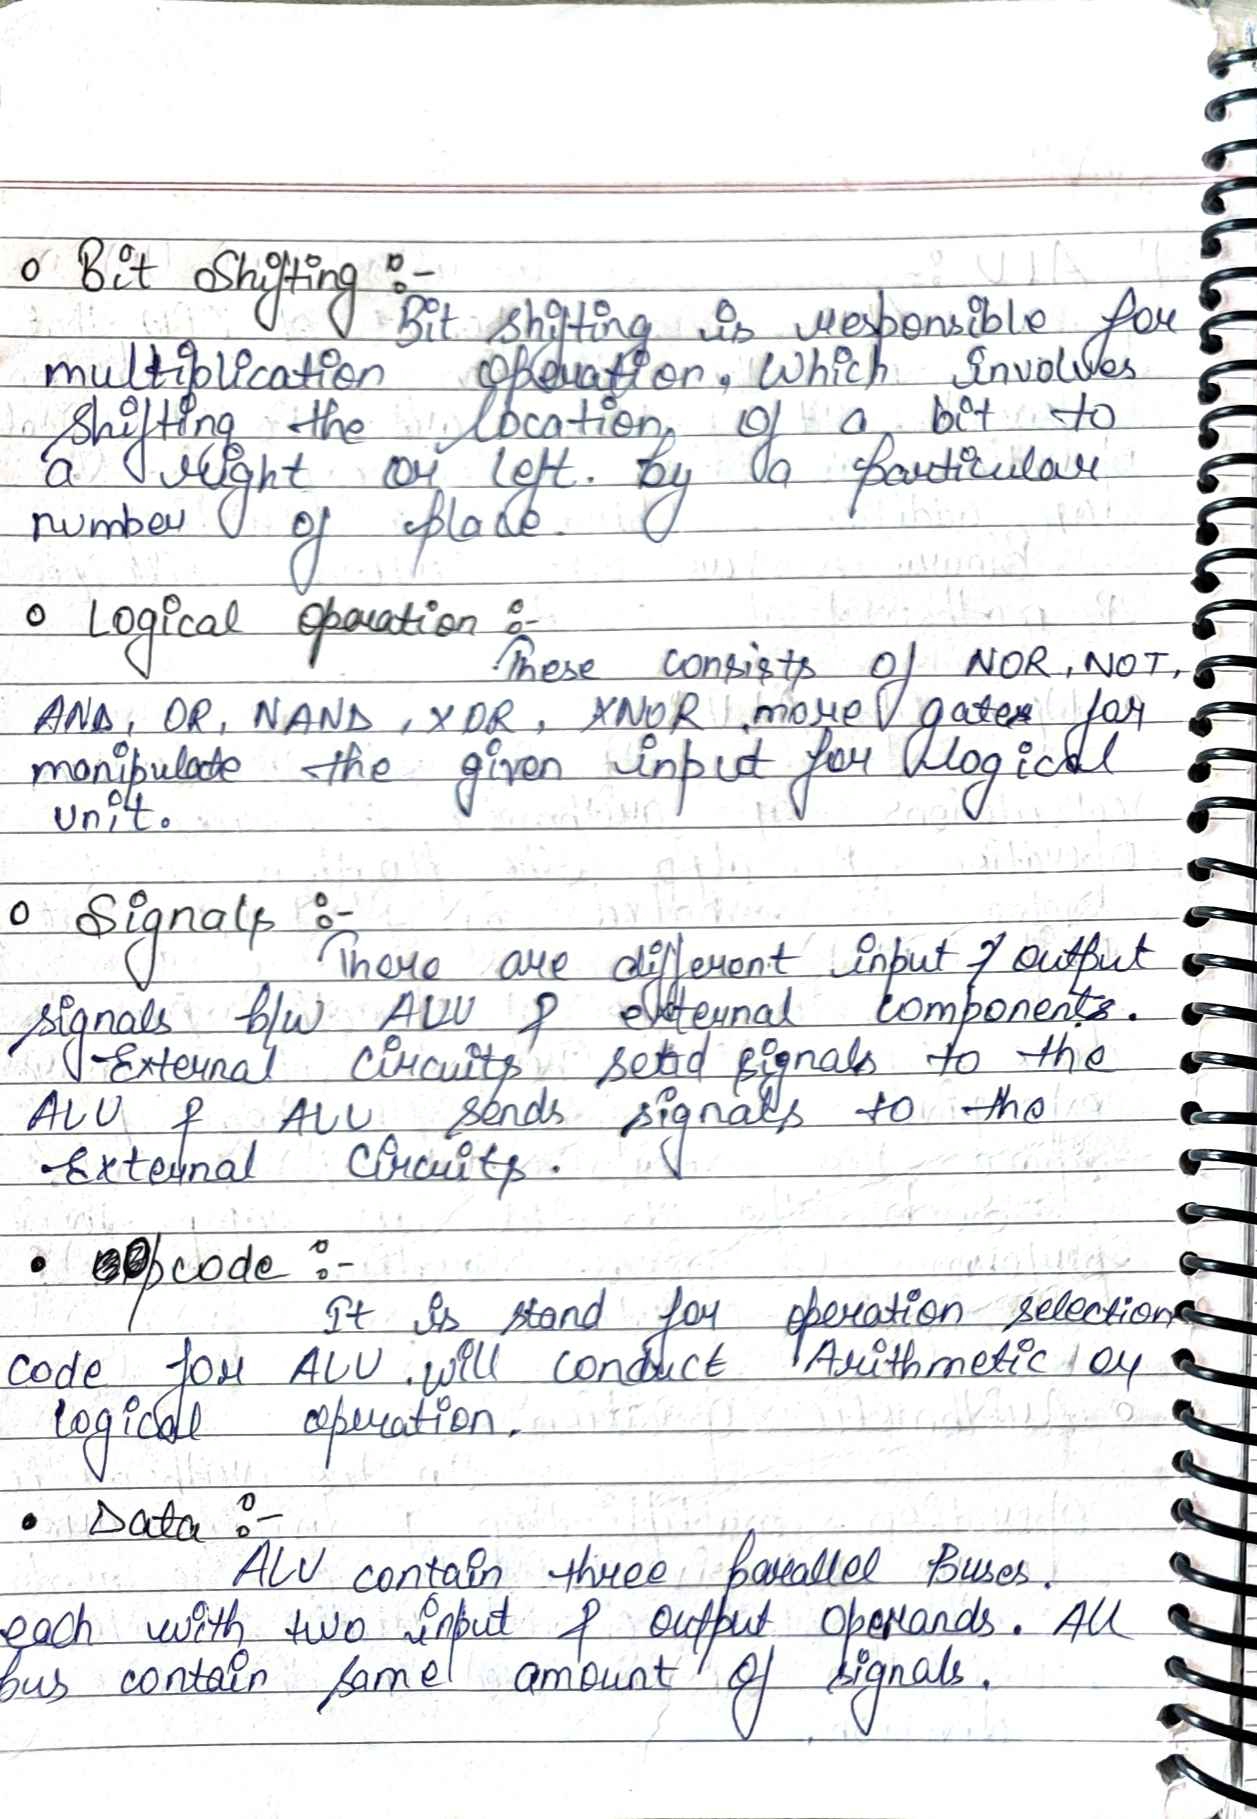 o Bit Shifting :-
Bit shifting is responsible for
multiplication operation, which involves
shifting the location of a bit to
a right or left. by a particular
number of place.
o Logical operation :-
These consists of NOR, NOT,
AND, OR, NAND, XOR, XNOR more gates for
manipulate the given input for logical
unit.
o Signals :-
There are different input & output
signals b/w ALU & external components.
External circuits send signals to the
ALU & ALU sends signals to the
External circuits.
• Opcode :-
It is stand for operation selection
code for ALU. will conduct Arithmetic or
logical operation.
• Data :-
ALU contain three parallel Buses.
each with two input & output operands. All
bus contain same amount of signals.